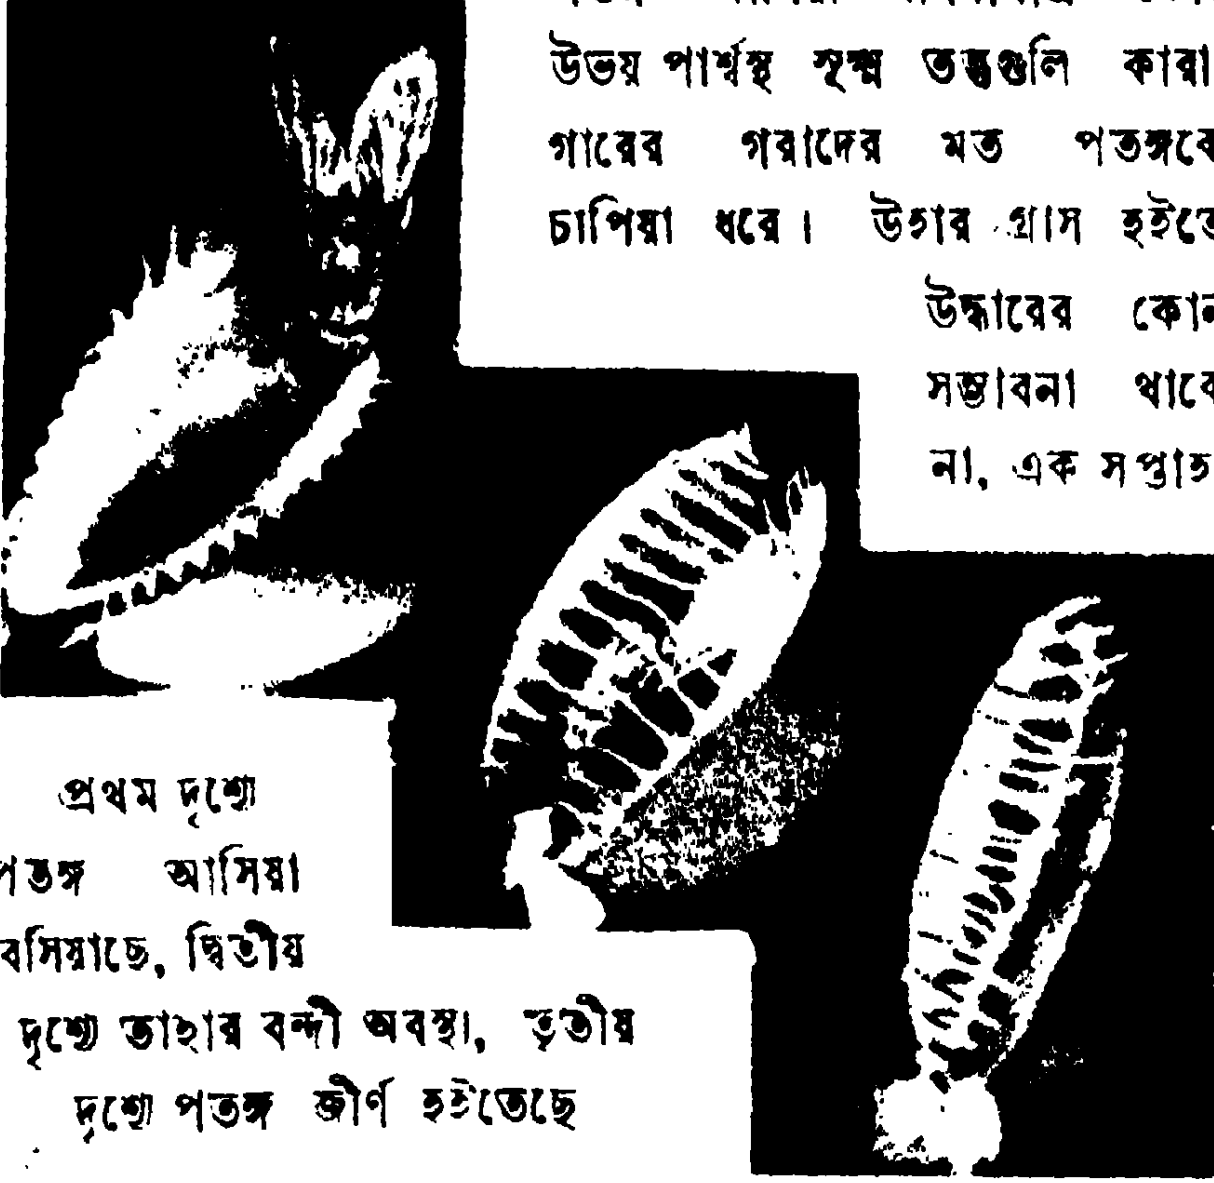 উভয় পার্শ্বস্থ সূক্ষ্ম তন্তুগুলি কারা
গারের গরাদের মত পতঙ্গকে
চাপিয়া ধরে। উহার গ্রাস হইতে
উদ্ধারের কোন
সম্ভাবনা থাকে
না, এক সপ্তাহ
প্রথম দৃশ্যে
পতঙ্গ আসিয়া
বসিয়াছে, দ্বিতীয়
দৃশ্যে তাহার বন্দী অবস্থা, তৃতীয়
দৃশ্যে পতঙ্গ জীর্ণ হইতেছে